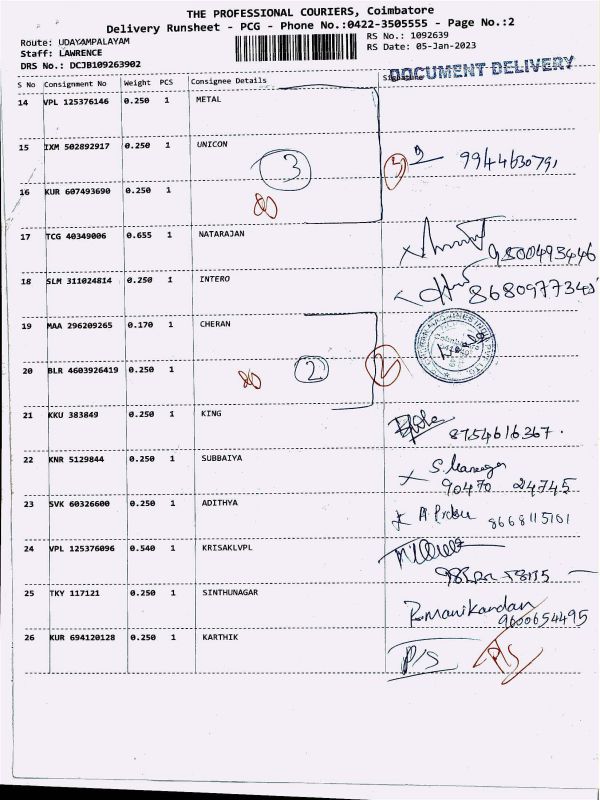 THE PROFESSIONAL COURIERS, Coimbatore
Delivery Runsheet - PCG - Phone No.:0422-3505555 - Page No.:2
Route: UDAYAMPALAYAM
Staff: LAWRENCE
DRS No.: DCJB109263902
RS No.: 1092639
RS Date: 05-Jan-2023
S No Consignment No Weight PCS Consignee Details Signature
DOCUMENT DELIVERY
14 VPL 125376146 0.250 1 METAL
15 IXM 502892917 0.250 1 UNICON
3 3 9944630791
16 KUR 607493690 0.250 1
17 TCG 40349006 0.655 1 NATARAJAN
9500493446
18 SLM 311024814 0.250 1 INTERO
8680977345
19 MAA 296209265 0.170 1 CHERAN
20 BLR 4603926419 0.250 1
2 2
21 KKU 383849 0.250 1 KING
8754616367.
22 KNR 5129844 0.250 1 SUBBAIYA
90470 24745
23 SVK 60326600 0.250 1 ADITHYA
8668115101
24 VPL 125376096 0.540 1 KRISAKLVPL
25 TKY 117121 0.250 1 SINTHUNAGAR
R.manikandan
9600654495
26 KUR 694120128 0.250 1 KARTHIK
P/S P/S